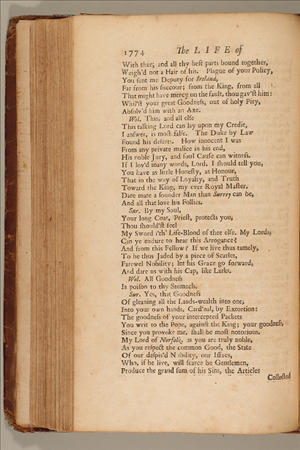 1774 The LIFE of
With thee, and all thy best parts bound together,
Weigh'd not a Hair of his. Plague of your Policy,
You sent me Deputy for Ireland,
Far from his succour; from the King, from all
That might have mercy on the fault, thou gav'st him:
Whil'st your great Goodness, out of holy Pity,
Absolv'd him with an Axe.
Wol. This, and all else
This talking Lord can lay upon my Credit,
I answer, is most false. The Duke by Law
Found his deserts. How innocent I was
From any private malice in his end,
His noble Jury, and foul Cause can witness.
If I lov'd many words, Lord, I should tell you,
You have as little Honesty, as Honour,
That in the way of Loyalty, and Truth
Toward the King, my ever Royal Master,
Dare mate a sounder Man than Surrey can be,
And all that love his Follies.
Sur. By my Soul,
Your long Coat, Priest, protects you,
Thou should'st feel
My Sword i'th' Life-Blood of thee else. My Lords,
Can ye endure to hear this Arrogance?
And from this Fellow? If we live thus tamely,
To be thus Jaded by a piece of Scarlet,
Farewel Nobility; let his Grace go forward,
And dare us with his Cap, like Larks.
Wol. All Goodness
Is poison to thy Stomach.
Sur. Yes, that Goodness
Of gleaning all the Lands-wealth into one,
Into your own hands, Card'nal, by Extortion:
The goodness of your intercepted Packets
You writ to the Pope, against the King; your goodness,
Since you provoke me, shall be most notorious.
My Lord of Norfolk, as you are truly noble,
As you respect the common Good, the State
Of our despis'd Nobility, our Issues,
Who, if he live, will scarce be Gentlemen,
Produce the grand sum of his Sins, the Articles
Collected